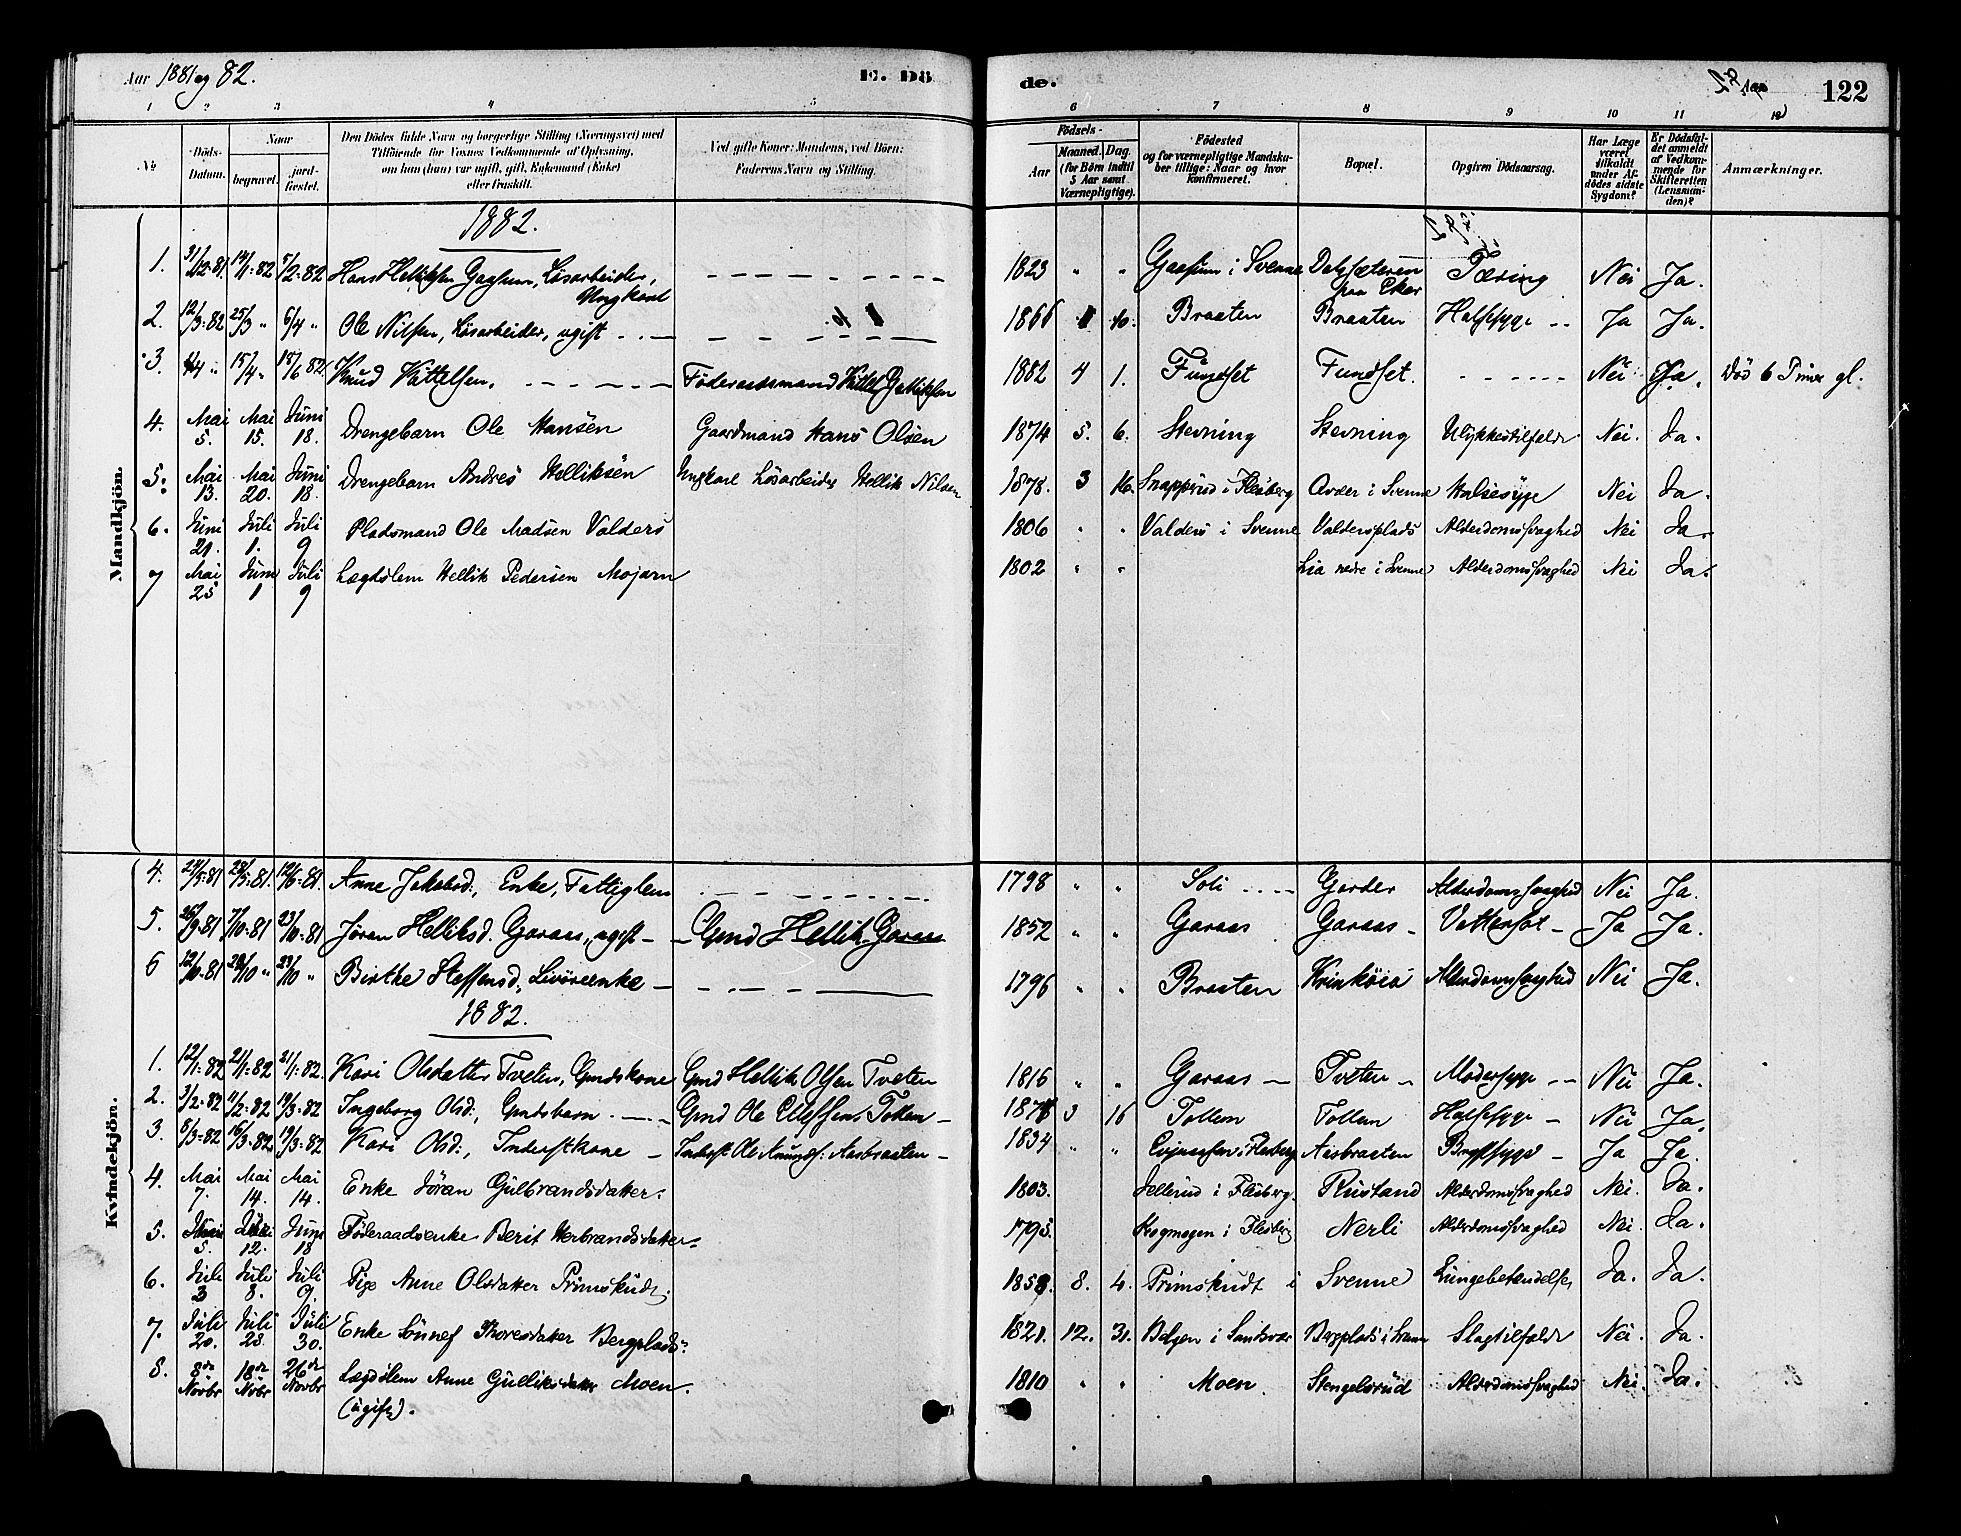 Aar 1881 og 82.
E. Dø
de.
122
1 2 3 4 5 6 7 8 9 10 11 12
No.
Døds-Datum.
Naar
begravet.
jordfæstet.
Den Dødes fulde Navn og borgerlige Stilling (Næringsvei) med
Tilføiende for Voxnes Vedkommende af Oplysning,
om han (hun) var ugift, gift, Enkemand (Enke)
eller fraskilt.
Ved gifte Koner: Mandens, ved Børn:
Faderens Navn og Stilling.
Fødsels-
Aar
Maaned. Dag.
(for Børn indtil
5 Aar samt
Værnepligtige).
Fødested
og for værnepligtige Mandskaber tillige: Naar og hvor
konfirmeret.
Bopæl.
Opgiven Dødsaarsag.
Har Læge
været
tilkaldt
under Afdødes sidste
Sygdom?
Er Dødsfaldet anmeldt
af Vedkommende for
Skifteretten
(Lensmanden)?
Anmærkninger.
Mandkjön.
1882.
1. 31/12-81 14/1-82 5/2-82 Hans Helliksen Gaasum, Løsarbeider, Ungkarl 1823 " " Gaasum i Svenne Dalsæteren paa Eker Tæring Nei Ja.
2. 12/3-82 25/3 " 6/4 " Ole Nilsen, Løsarbeider, ugift 1866 10. Braaten Braaten Halssyge Ja Ja.
3. 4/4 " 15/4 " 18/6 82. Knud Kittelsen. Føderaadsmand Kittel Gulliksen 1882 4 1. Fundset Fundset. Nei Ja. Død 6 Timer gl.
4. Mai 5. Mai 15. Juni 18. Drengebarn Ole Hansen Gaardmand Hans Olsen 1874 5. 6. Stevning Stevning Ulykkestilfelde Nei. Ja.
5. Mai 13. Mai 20. Juni 18. Drengebarn Andres Helliksen Ungkarl Løsarbeider Hellik Nilsen 1878. 3 16. Snapprud i Flesberg Avder i Svenne Halsesyge Nei Ja.
6. Juni 21. Juli 1. Juli 9 Pladsmand Ole Madsen Valders 1806 " " Valders i Svenne Valdersplads Alderdomssvaghed Nei Ja.
7 Mai 25 Juni 1 Juli 9 Lægdslem Hellik Pedersen Mojarn 1802 " " Lia nedre i Svenne Alderdomssvaghed Nei Ja.
Kvindekjön.
4. 24/5-81 28/5-81. 12/6-81. Anne Jakobsd., Enke, Fattiglem 1798 " " Soli Garder Alderdomssvaghed Nei Ja.
5. 26/9-81 7/10-81 23/10-81 Jøran Helliksd. Garaas, ugift Gmd Hellik Garaas 1852 " " Garaas Garaas Vattersot Ja Ja.
6 12/10-81 20/10 " 23/10 " Birthe Steffensd., Livøreenke 1796 " " Braaten Krinköia Alderdomssvaghed Nei Ja.
1882.
1. 12/1-82 21/1-82 21/1-82. Kari Olsdatter Tveten, Gmdskone Gmd Hellik Olsen Tveten 1816 " " Garaas Tveten Modersyge Nei Ja.
2. 3/2-82 11/2-82 19/3-82 Ingeborg Olsd., Gmdsbarn Gmd Ole Ellefsen Tollen 1878 3 16 Tollem Tollem Halssyge Nei Ja.
3. 8/3-82 16/3-82. 19/3-82 Kari Olsd., Inderstkone Inderst Ole Knuds: Aasbraaten 1834 " " i Flesberg Aasbraaten Brystsyge Ja Ja.
4. Mai 7. Mai 14. Mai 14. Enke Jöran Gulbrandsdatter. 1803. Jellerud i Flesberg. Rustand Alderdomssvaghed Nei. Ja.
5. Juni 5. Juni 12. Juni 18 Føderaadsenke Berit Herbrandsdatter. 1795. i Flesberg Nerli Alderdomssvaghed Nei. Ja.
6. Juli 3 Juli 8. Juli 9. Pige Anne Olsdatter Primskudt. 1858. 8. 4. Primskudt i Svenne Lungebetændelse Ja. Ja.
7. Juli 20. Juli 28 Juli 30. Enke Sönnef Thoresdatter Bergplads. 1821. 12. 31. Bolgen i Sandsvær Bergplads i Svenne Slagtilfælde Nei. Ja.
8. 8de Novbr 18de Novbr 26de Novbr Lægdslem Anne Gulliksdatter Moen. (ugift). 1810 " " Moen. Stengelsrud Alderdomssvaghed Nei. Ja.